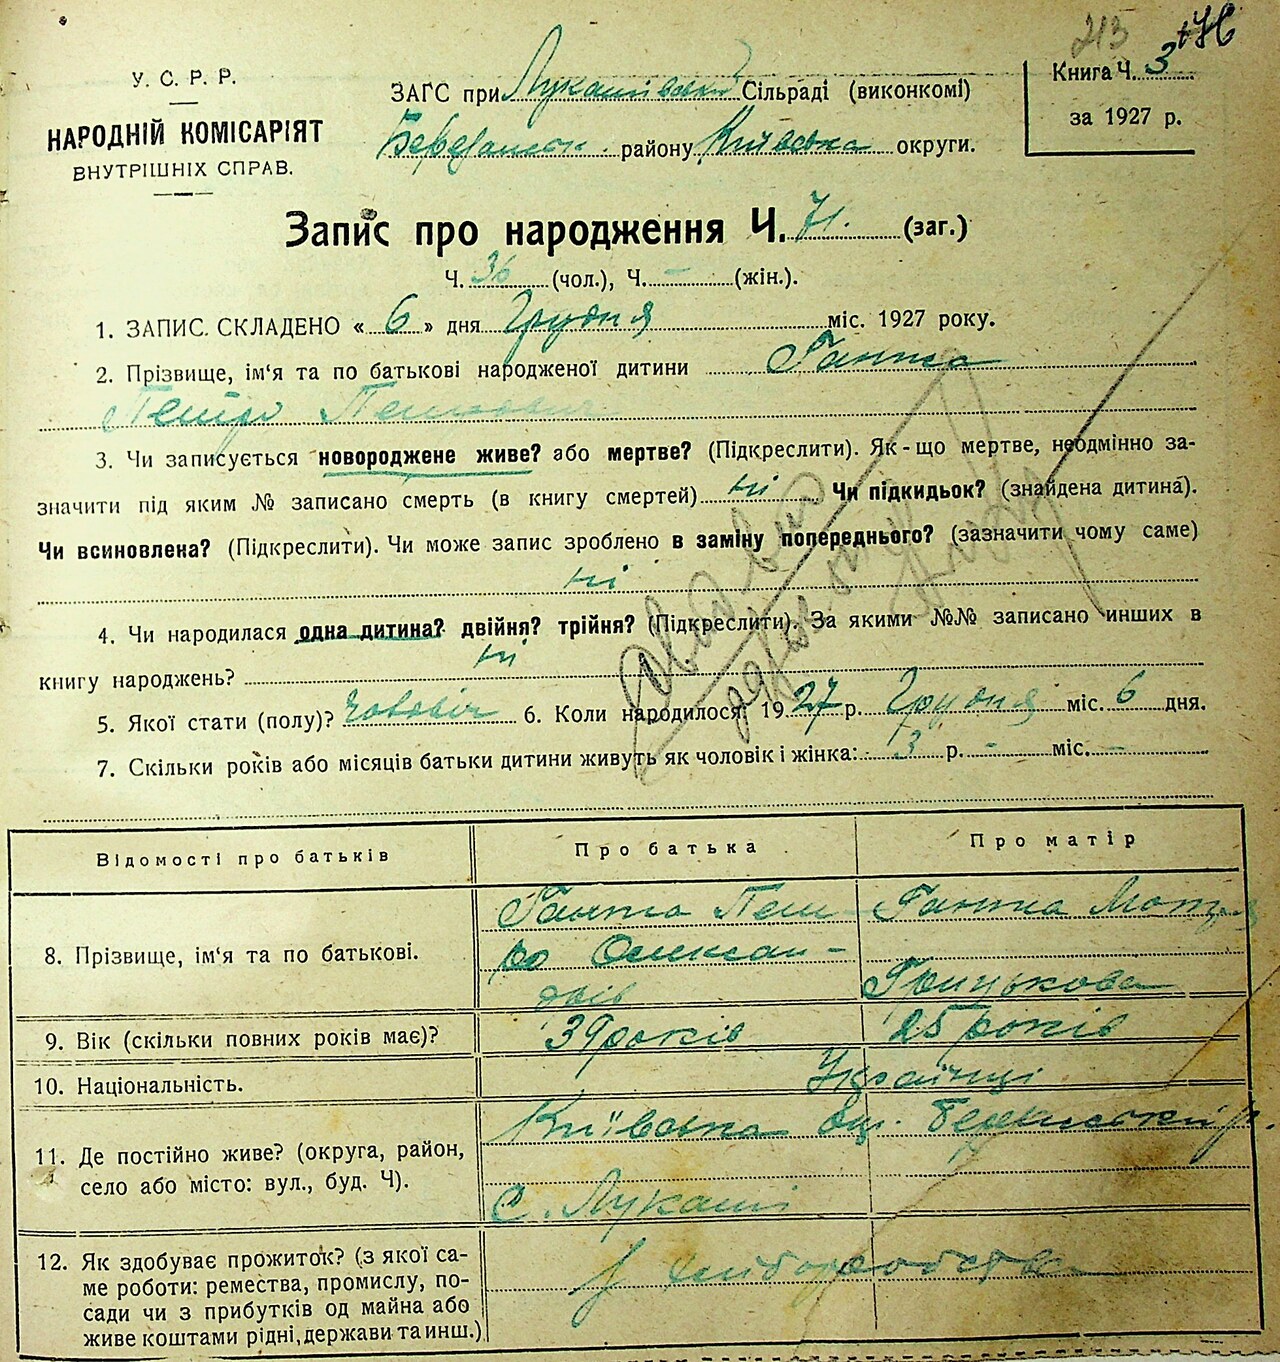 213
У. С. Р. Р.
НАРОДНІЙ КОМІСАРІЯТ
ВНУТРІШНІХ СПРАВ.
ЗАГС при Лукашівській Сільраді (виконкомі)
району Київська округи.
Книга Ч. 3
за 1927 р.
Запис про народження Ч. 71. (заг.)
Ч. 36 (чол.), Ч. - (жін.).
1. ЗАПИС. СКЛАДЕНО « 6 » дня Грудня міс. 1927 року.
2. Прізвище, ім‘я та по батькові народженої дитини
Петро Петрович
3. Чи записується новороджене живе? або мертве? (Підкреслити). Як-що мертве, неодмінно за-
значити під яким № записано смерть (в книгу смертей) ні Чи підкидьок? (знайдена дитина).
Чи всиновлена? (Підкреслити). Чи може запис зроблено в заміну попереднього? (зазначити чому саме)
ні
4. Чи народилася одна дитина? двійня? трійня? (Підкреслити). За якими №№ записано инших в
книгу народжень? ні
5. Якої стати (полу)? 6. Коли народилося: 1927 р. Грудня міс. 6 дня.
7. Скільки років або місяців батьки дитини живуть як чоловік і жінка: 3 р. - міс. -
Відомості про батьків
Про батька
Про матір
8. Прізвище, ім‘я та по батькові.
Пет-
ро Олексан-
Гринькова
9. Вік (скільки повних років має)?
39 років
25 років
10. Національність.
Українці
11. Де постійно живе? (округа, район,
село або місто: вул., буд. Ч).
Київська окр. р.
С. Лукаші
12. Як здобуває прожиток? (з якої са-
ме роботи: ремества, промислу, по-
сади чи з прибутків од майна або
живе коштами рідні, держави та инш.)
з хліборобства